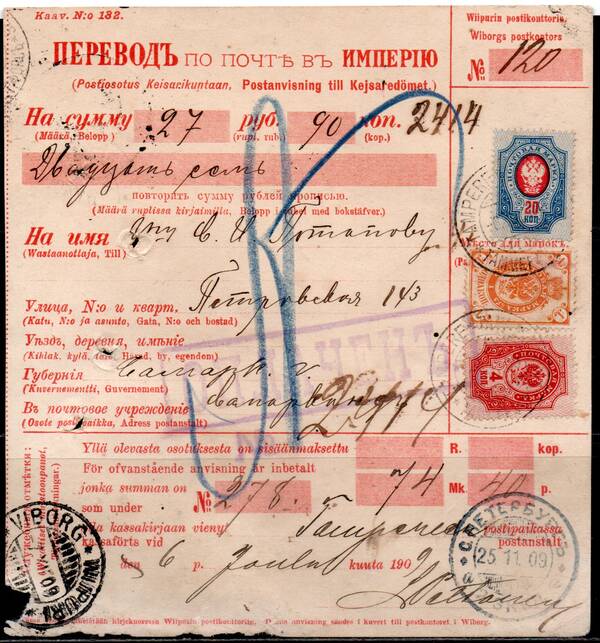 Kaav. N:o 132.
Wiipurin postikonttorin,
Wiborgs postkontors
№ 120
ПЕРЕВОДЪ ПО ПОЧТѢ ВЪ ИМПЕРІЮ
(Postiosotus Keisarikuntaan, Postanvisning till Kejsaredömet.)
На сумму 27 руб. 90 коп. 2414
(Määrä, Belopp) (rupl. rub.) (kop.)
Двадцать семь
повторить сумму рублей прописью.
(Määrä ruplissa kirjaimilla, Belopp i rubel med bokstäfver.)
ПОЧТОВАЯ МАРКА
20
КОП
На имя С. И. Потапову
(Wastaanottaja, Till)
Мѣсто для марокъ.
Улица, N:o и кварт. Петровская 143
(Katu, N:o ja asunto, Gata, N:o och bostad)
Уѣздъ, деревня, имѣніе
(Kihlak. kylä, talo, Härad, by, egendom)
Губернія Самарк. г.
(Kuvernementti, Guvernement)
Въ почтовое учрежденіе
(Osote postipaikka, Adress postanstalt)
4
КОП
Yllä olevasta osotuksesta on sisäänmaksettu R. kop.
För ofvanstående anvisning är inbetalt
jonka summan on 74 Mk. 40 p.
som under № 278.
kassakirjaan vieny postipaikassa
kassaförts vid postanstalt
den 6 p. Joulu kuuta 1909
VIBORG WIIPURI
С.ПЕТЕРБУРГЪ
25 11 09